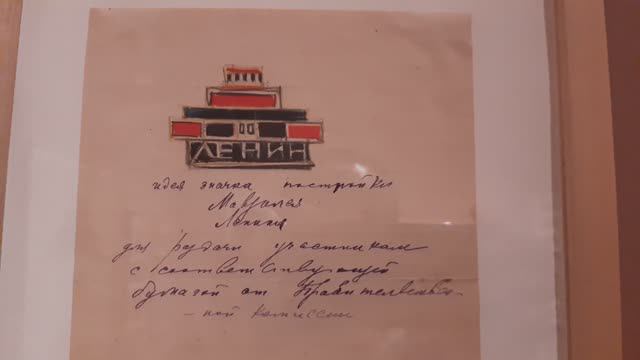 ЛЕНИН
идея значка постройки
Мавзолея
Ленина
для раздачи участникам
с соответствующей
бумагой от Правительствен-
-ной комиссии